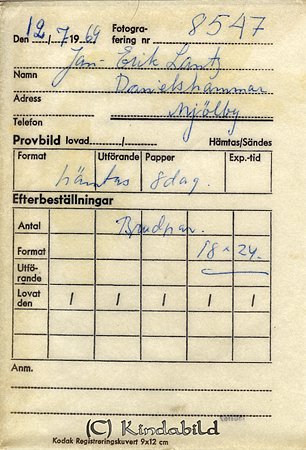 Den 12/7 1969 Fotogra-fering nr 8547
Namn Jan-Erik Lantz
Adress Danielshammar
Telefon Mjölby
Provbild lovad....../...... Hämtas/Sändes
Format Utförande Papper Exp.-tid
hämtas 8 dag.
Efterbeställningar
Antal Brudpar
Format 18 x 24.
Utfö-rande
Lovat den / / / / / /
Anm.
(C) Kindabild
Kodak Registreringskuvert 9x12 cm